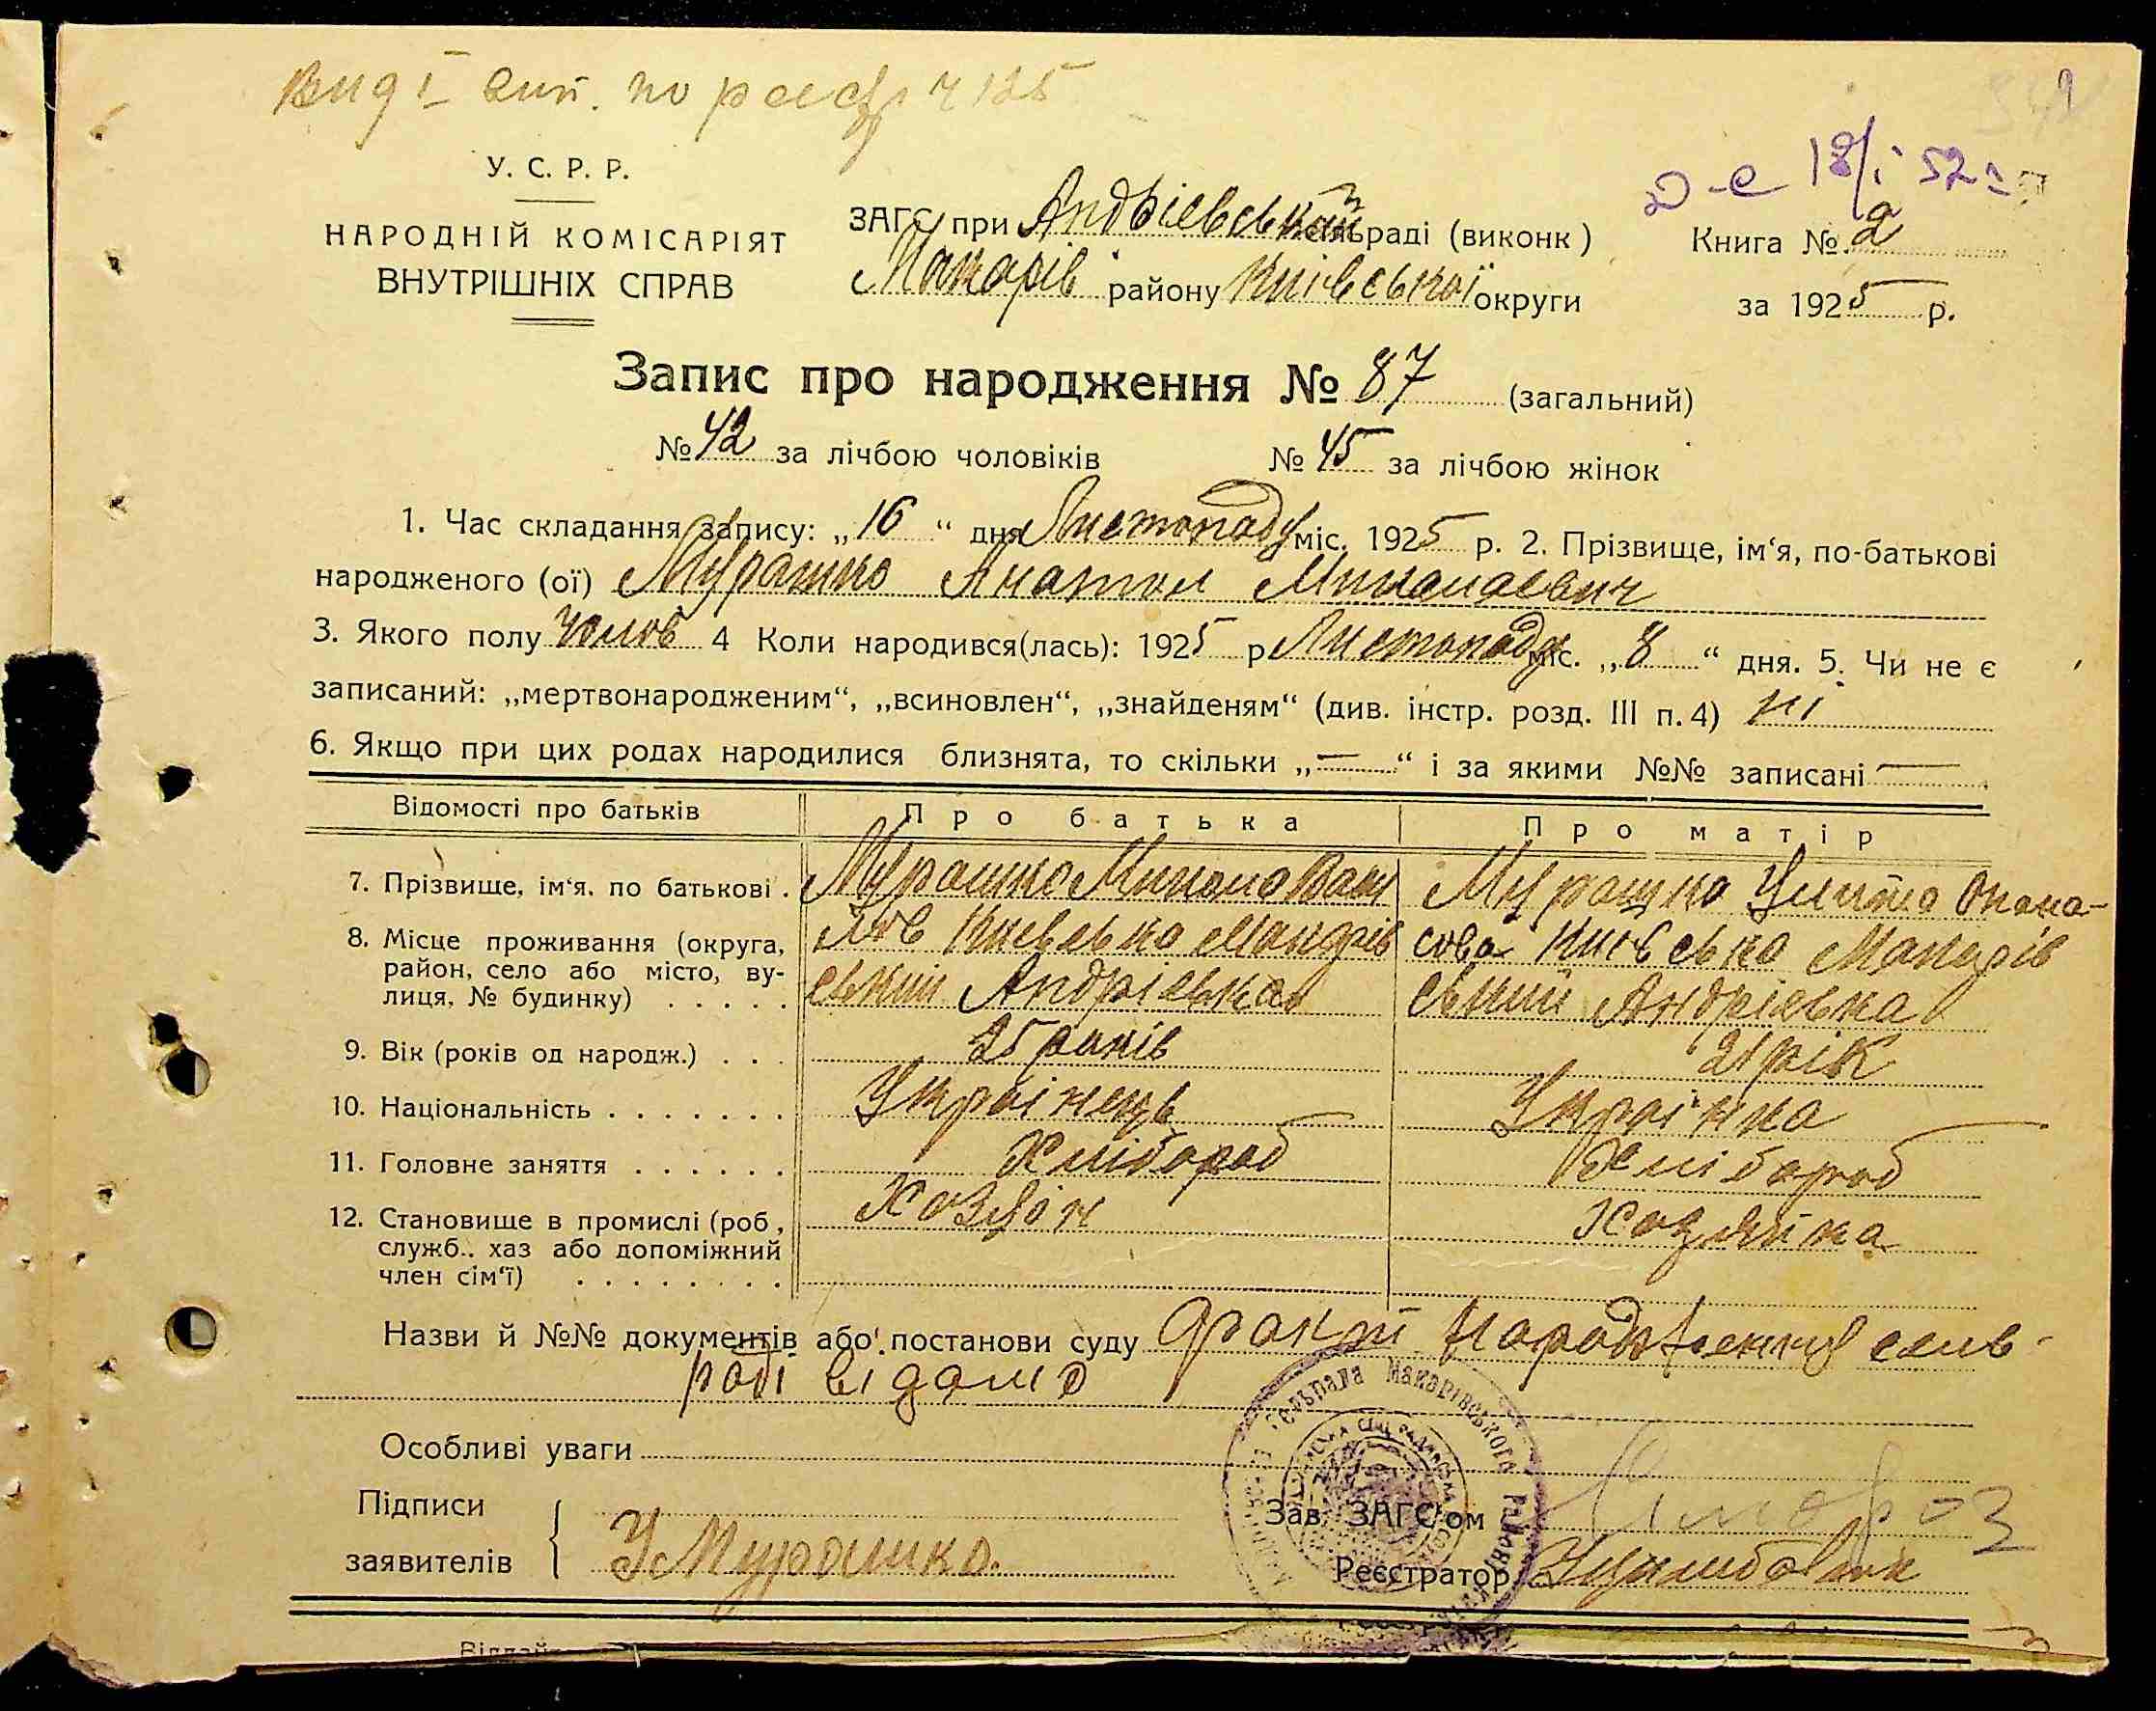 по реєстр 125
У. С. Р. Р.
НАРОДНІЙ КОМІСАРІЯТ
ВНУТРІШНІХ СПРАВ
ЗАГС при Андріевській сільраді (виконк)
Макарів району Київської округи
18/I 52
Книга № 2
за 1925 р.
Запис про народження № 87 (загальний)
№ 42 за лічбою чоловіків № 45 за лічбою жінок
1. Час складання запису: „16“ дня Листопаду міс. 1925 р. 2. Прізвище, ім‘я, по-батькові
народженого (ої) Мурашко Анатол Миколаевич
3. Якого полу Чолов 4 Коли народився(лась): 1925 р Листопаду міс. „8“ дня. 5. Чи не є
записаний: „мертвонародженим“, „всиновлен“, „знайденям“ (див. інстр. розд. III п. 4) ні
6. Якщо при цих родах народилися близнята, то скільки „—“ і за якими №№ записані —
Відомості про батьків Про батька Про матір
7. Прізвище, ім‘я. по батькові . Мурашко Микола Васи Мурашко Улита Опана-
8. Місце проживання (округа, лів Киевська Макарів сова Киівська Макарів
район, село або місто, ву- ський Андріевка ський Андріевка
лиця, № будинку) . . . . .
9. Вік (років од народж.) . . . 25 років 21 рік
10. Національність . . . . . . . Украінець Украінка
11. Головне заняття . . . . . . Хлібороб Хлібороб
12. Становище в промислі (роб, Хозяін Хозяйка
служб.. хаз або допоміжний
член сім‘ї) . . . . . . . .
Назви й №№ документів або постанови суду факт народження силь-
раді відамо
Особливі уваги
Підписи
заявителів У Мурашко.
Зав. ЗАГС‘ом Мороз
Реєстратор
сельрада Макарівського району